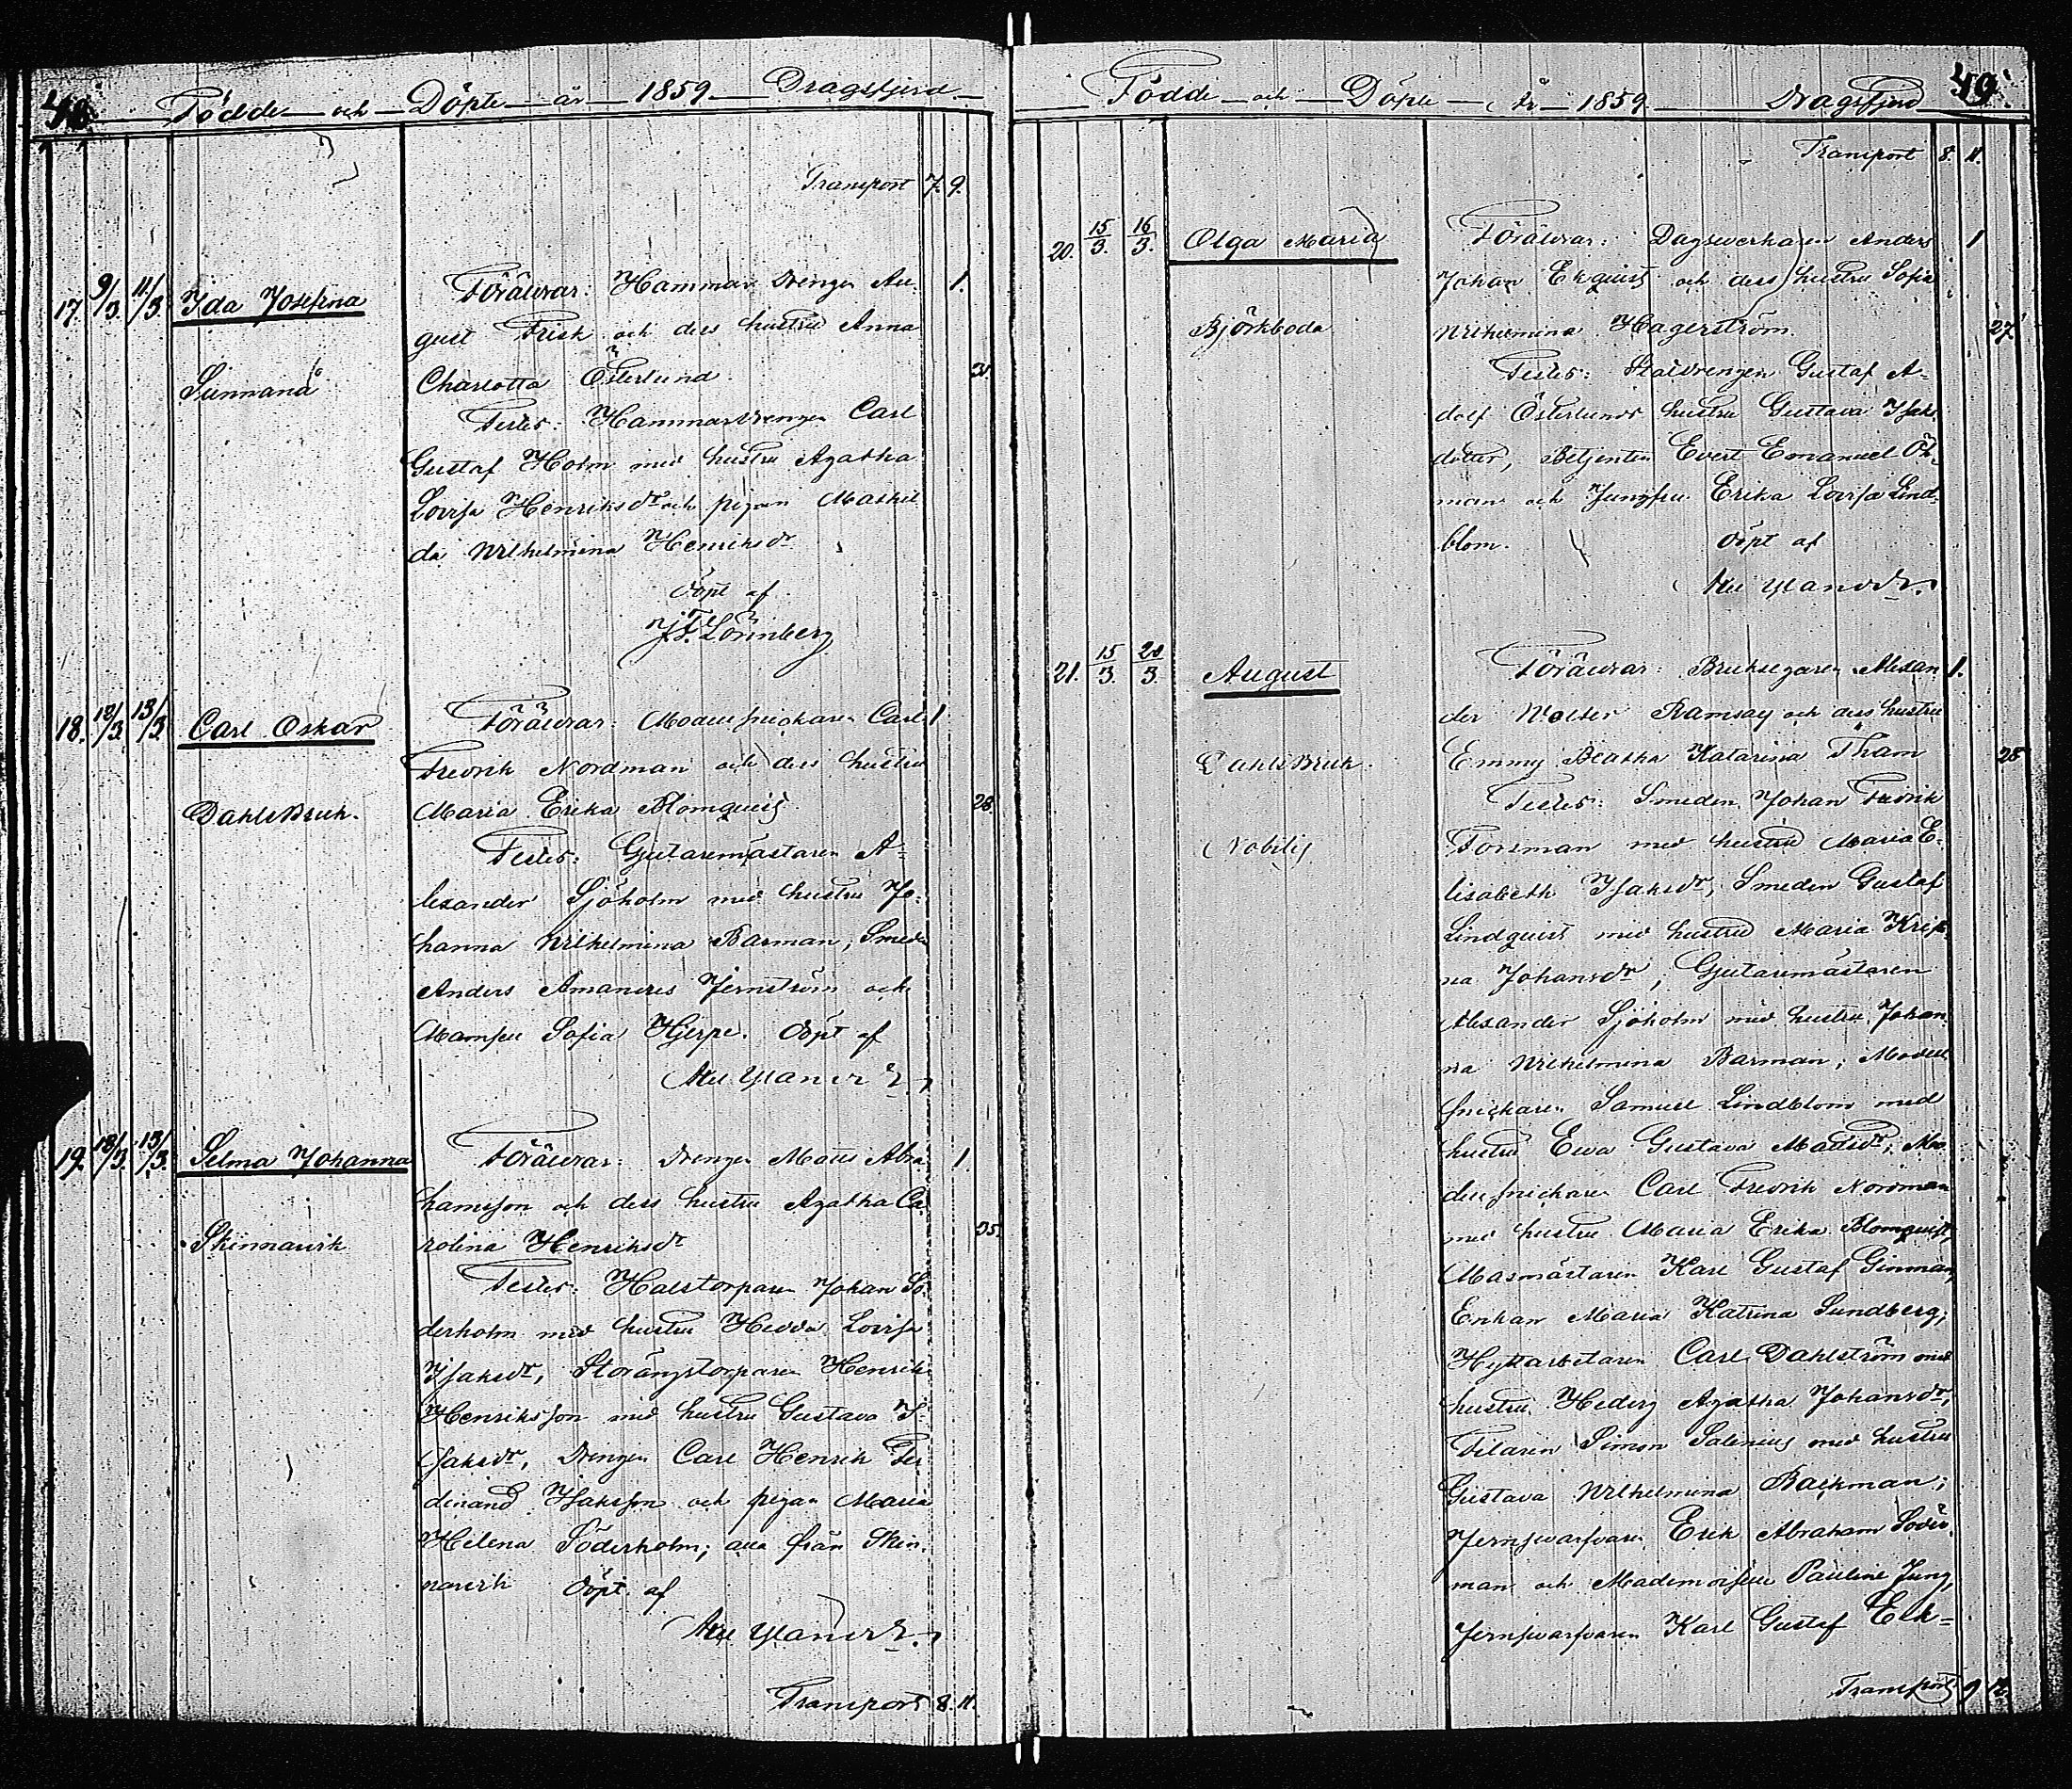 48.
Födde och Döpte år 1859 Dragsfjerd
Transport 7. 9.
17. 9/3. 11/3. Ida Josefina
Sunnanå
Föräldrar: Hammar drengen Au- 1.
gust Frisk och dess hustru Anna
Charlotta Österlund. 31.
Testes: Hammardrengen Carl
Gustaf Holm med hustru Agatha
Lovisa Henriksdr och pigan Mathil
da Wilhelmina Henriksdr
döpt af
J. F. Lönnberg
18. 12/3. 13/3. Carl Oskar
Dahls Bruk.
Föräldrar: Modellsnickaren Carl 1
Fredrik Nordman och dess hustru
Maria Erika Blomquist 28.
Testes: Gjutaremästaren A-
lexander Sjöholm med hustru Jo-
hanna Wilhelmina Barman, Smeden
Anders Amandus Jernström och
Mamsell Sofia Hjerpe. döpt af
19. 12/3. 13/3. Selma Johanna
Skinnarvik
Föräldrar: drengen Matts Abra 1.
hamsson och dess hustru Agatha Ca
rolina Henriksdr 35.
Testes: Halstorparen Johan Sö-
derholm med hustru Hedda Lovisa
Isaksdr, Storängstorparen Henrik
Henriksson med hustru Gustava I-
saksdr, drengen Carl Henrik Fer
dinand Isaksson och pigan Maria
Helena Söderholm; alla från Skin-
narvik döpt af
Transport 8. 11.
49.
Födde och Döpte År 1859 Dragsfjerd
Transport 8. 11.
20. 15/3. 16/3. Olga Maria
Björkboda
Föräldrar: Dagsverkaren Anders 1
Johan Ekquist och dess hustru Sofia
Wilhelmina Hagerström. 27.
Testes: Stalldrengen Gustaf A-
dolf Österlunds hustru Gustava Isaks
dotter, Betjenten Evert Emanuel Öh-
man och Jungfru Erika Lovisa Lind-
blom. döpt af
21. 15/3. 20/3. August
Dahls Bruk.
Nobilis
Föräldrar: Bruksegaren Alexan 1.
der Wolter Ramsay och dess hustru
Emmy Beatha Katarina Tham 28
Testes: Smeden Johan Fredrik
Forsman med hustru Maria E-
lisabeth Isaksdr, Smeden Gustaf
Lindquist med hustru Maria Kristi
na Johansdr; Gjutaremästaren
Alexander Sjöholm med hustru Johan
na Wilhelmina Barman; Modell
snickaren Samuel Lindblom med
hustru Ewa Gustava Mattsdr; Mo
dellsnickaren Carl Fredrik Nordman
med hustru Maria Erika Blomquist,
Masmästaren Karl Gustaf Ginman,
Enkan Maria Katrina Sundberg;
Hyttarbetaren Carl Dahlström med
hustru Hedvig Agatha Johansdr,
Filaren Simon Salenius med hustru
Gustava Wilhelmina Backman;
Jernsvarfvaren Erik Abraham Söder-
man och Mademoiselle Pauline Jung,
Jernsvarfvaren Karl Gustaf Eck-
Transport 9 12.